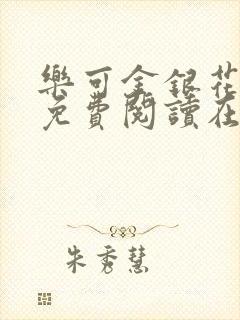 樂可金銀花
免費閱讀在
朱秀慧